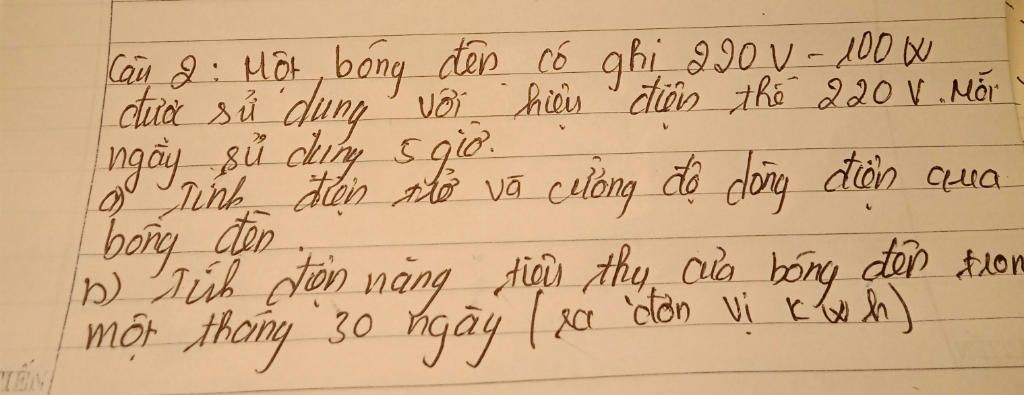 Câu 2: Một bóng đèn có ghi 220V - 100W
được sử dụng với hiệu điện thế 220V. Mỗi
ngày sử dụng 5 giờ.
a) Tính điện trở và cường độ dòng điện qua
bóng đèn.
b) Tính điện năng tiêu thụ của bóng đèn tron
một tháng 30 ngày (ra đơn vị KWh)